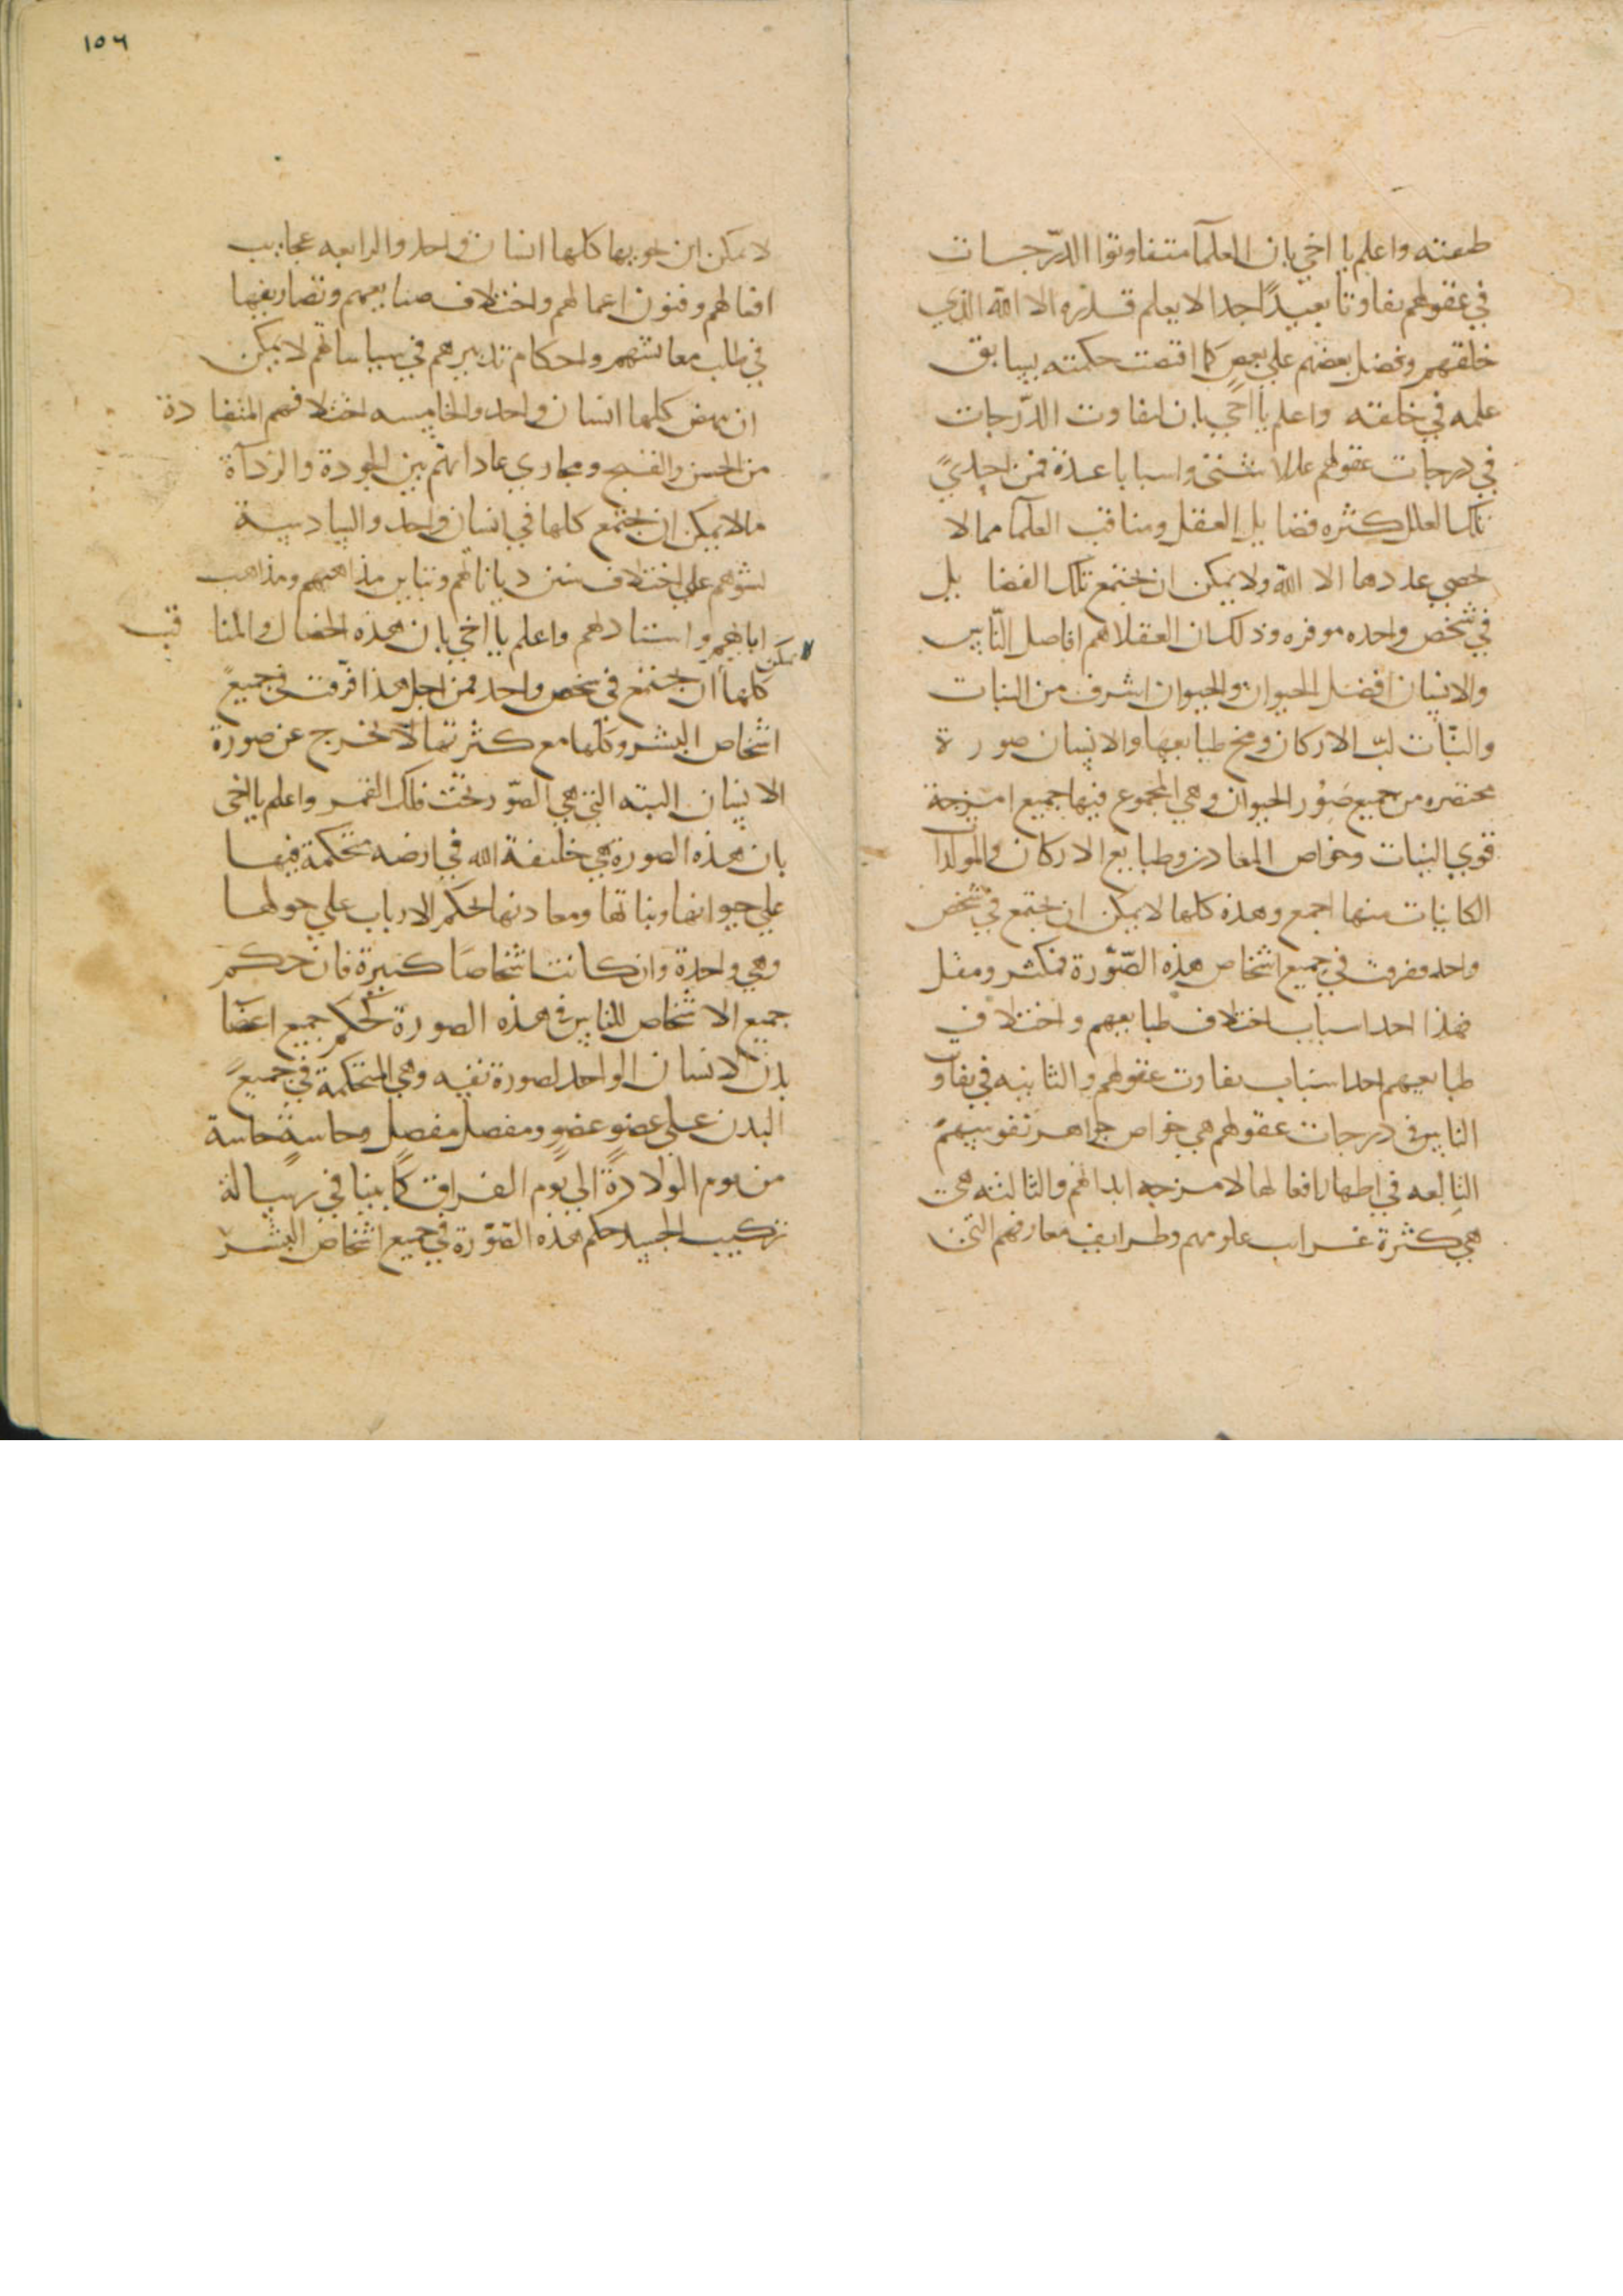 طفته واعلم يا اخي بان العلمآ متفاوتوا الدّرجات
في عقولهم تفاوتا بعيدًا جدا لا يعلم قدره الا الله الذي
خلقهم وفضل بعضهم علي بعض كما اقتضت حكمته بسابق
علمه في خلقته واعلم يا اخي بان لتفاوت الدّرجات
في درجات عقولهم عللا شتى واسبابا عدة فمن احدي
تلك العلل كثره فضايل العقل ومناقب العلمآ مما لا
يحصي عددها الا الله ولا يمكن ان يجتمع تلك الفضايل
في شخص واحده موفره وذلك ان العقلا هم افاضل النّاس
والانسان افضل الحيوان والحيوان اشرف من النبات
والنبّات لبّ الاركان ومخ طبايعها والانسان صورة
مختصره من جميع صُور الحيوان وهي المجموع فيها جميع امزجة
قوي النبات وخواص المعادن وطبايع الاركان والمولدات
الكاينات منها اجمع وهذه كلها لا يمكن ان يجتمع في شخص
واحد مفرقت في جميع اشخاص هذه الصّورة فمكثر ومقل
فهذا احد اسباب اختلاف طبايعهم واختلاف
طبايعهم احد اسباب تفاوت عقولهم والثانيه في تفاوت
الناس في درجات عقولهم هي خواص جواهر نفوسهم
التابعه في اظهار افعالها لامزجه ابدانهم والثالثه هي
هي كثرة غرايب علومهم وطرايف معارفهم التي
١٥٦
لا يمكن ان يحويها كلها انسان واحد والرابعه عجايب
افعالهم وفنون اعمالهم واختلاف صنايعهم وتصاريفها
في طلب معايشهم واحكام تدبيرهم في سياساتهم لا يمكن
ان ينهض كلها انسان واحد والخامسه اختلافهم المتضادة
من الحسن والقبيح ومجاري عاداتهم بين الجودة والردآة
ما لا يمكن ان يجتمع كلها في انسان واحد والسادسة
نشوهم علي اختلاف سنن دياناتهم وتباين مذاهبهم ومذاهب
ابايهم واستادهم واعلم يا اخي بان هذه الخصال والمناقب
لا يمكن
كلها ان يجتمع في شخص واحد فمن اجل هذا فرّقت في جميع
اشخاص البشر وكلها مع كثرتها لا تخرج عن صورة
الانسان البته التي هي الصّور تحت فلك القمر واعلم يا اخي
بان هذه الصورة هي خليفة الله في ارضه متحكمة فيها
علي حيوانها ونباتها ومعادنها لحكم الارباب علي حولها
وهي واحدة وان كانت اشخاصًا كبيرة فان حكم
جميع الاشخاص للناس في هذه الصورة كحكم جميع اعضا
بدن الانسان الواحد لصورة نفسه وهي المتحكمة في جميع
البدن علي عضوٍ عضوٍ ومفصل مفصل وحاسةٍ حاسة
من يوم الولادة الي يوم الفراق كما بينا في رسالة
تركيب الجسد حكم هذه الصّورة في جميع اشخاص البشر